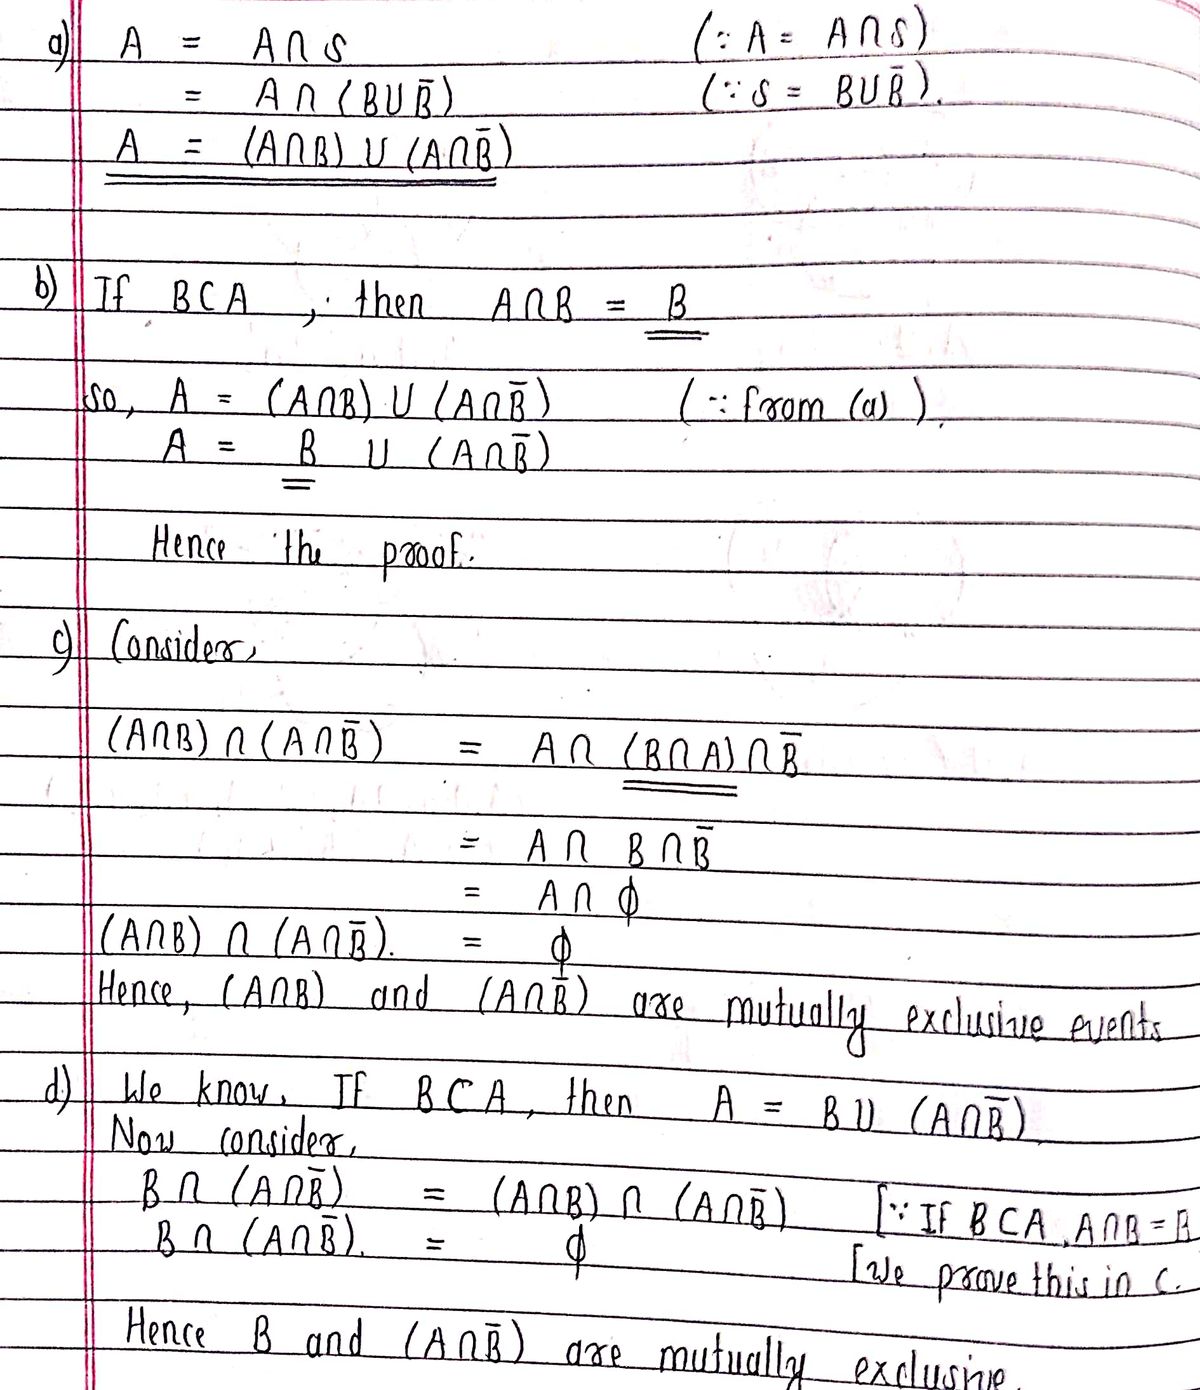 a) A = A∩S (∵ A = A∩S)
= A∩(B∪B̄) (∵ S = B∪B̄).
A = (A∩B) ∪ (A∩B̄)
b) If B⊂A, then A∩B = B
so, A = (A∩B) ∪ (A∩B̄) (∵ from (a))
A = B ∪ (A∩B̄)
Hence the proof.
c) Consider,
(A∩B) ∩ (A∩B̄) = A∩ (B∩A) ∩ B̄
= A∩ B∩B̄
= A∩ ϕ
(A∩B) ∩ (A∩B̄). = ϕ
Hence, (A∩B) and (A∩B̄) are mutually exclusive events
d) We know, If B⊂A, then A = B∪ (A∩B̄)
Now consider,
B∩ (A∩B̄) = (A∩B) ∩ (A∩B̄) [∵ If B⊂A, A∩B = B
B∩ (A∩B̄). = ϕ [we prove this in c.
Hence B and (A∩B̄) are mutually exclusive.